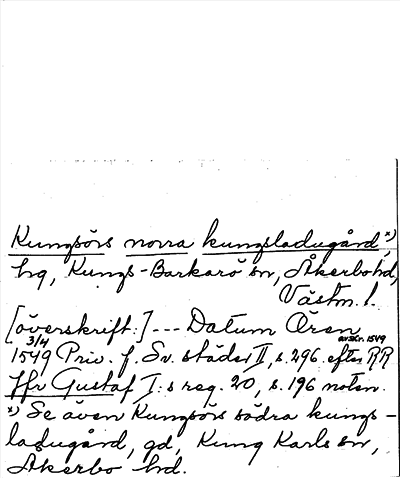 Kungsörs norra kungsladugård,x)
hg, Kungs-Barkarö sn, Åkerbo hd,
Västm. l.
[överskrift:] --- Datum Ören
avskr. 1549
3/4
1549 Priv. f. Sv. städer II, s. 296 efter RR
Jfr Gustaf I:s reg. 20, s. 196 noten.
x) Se även Kungsörs södra kungs-
ladugård, gd, Kung Karls sn,
Åkerbo hd.